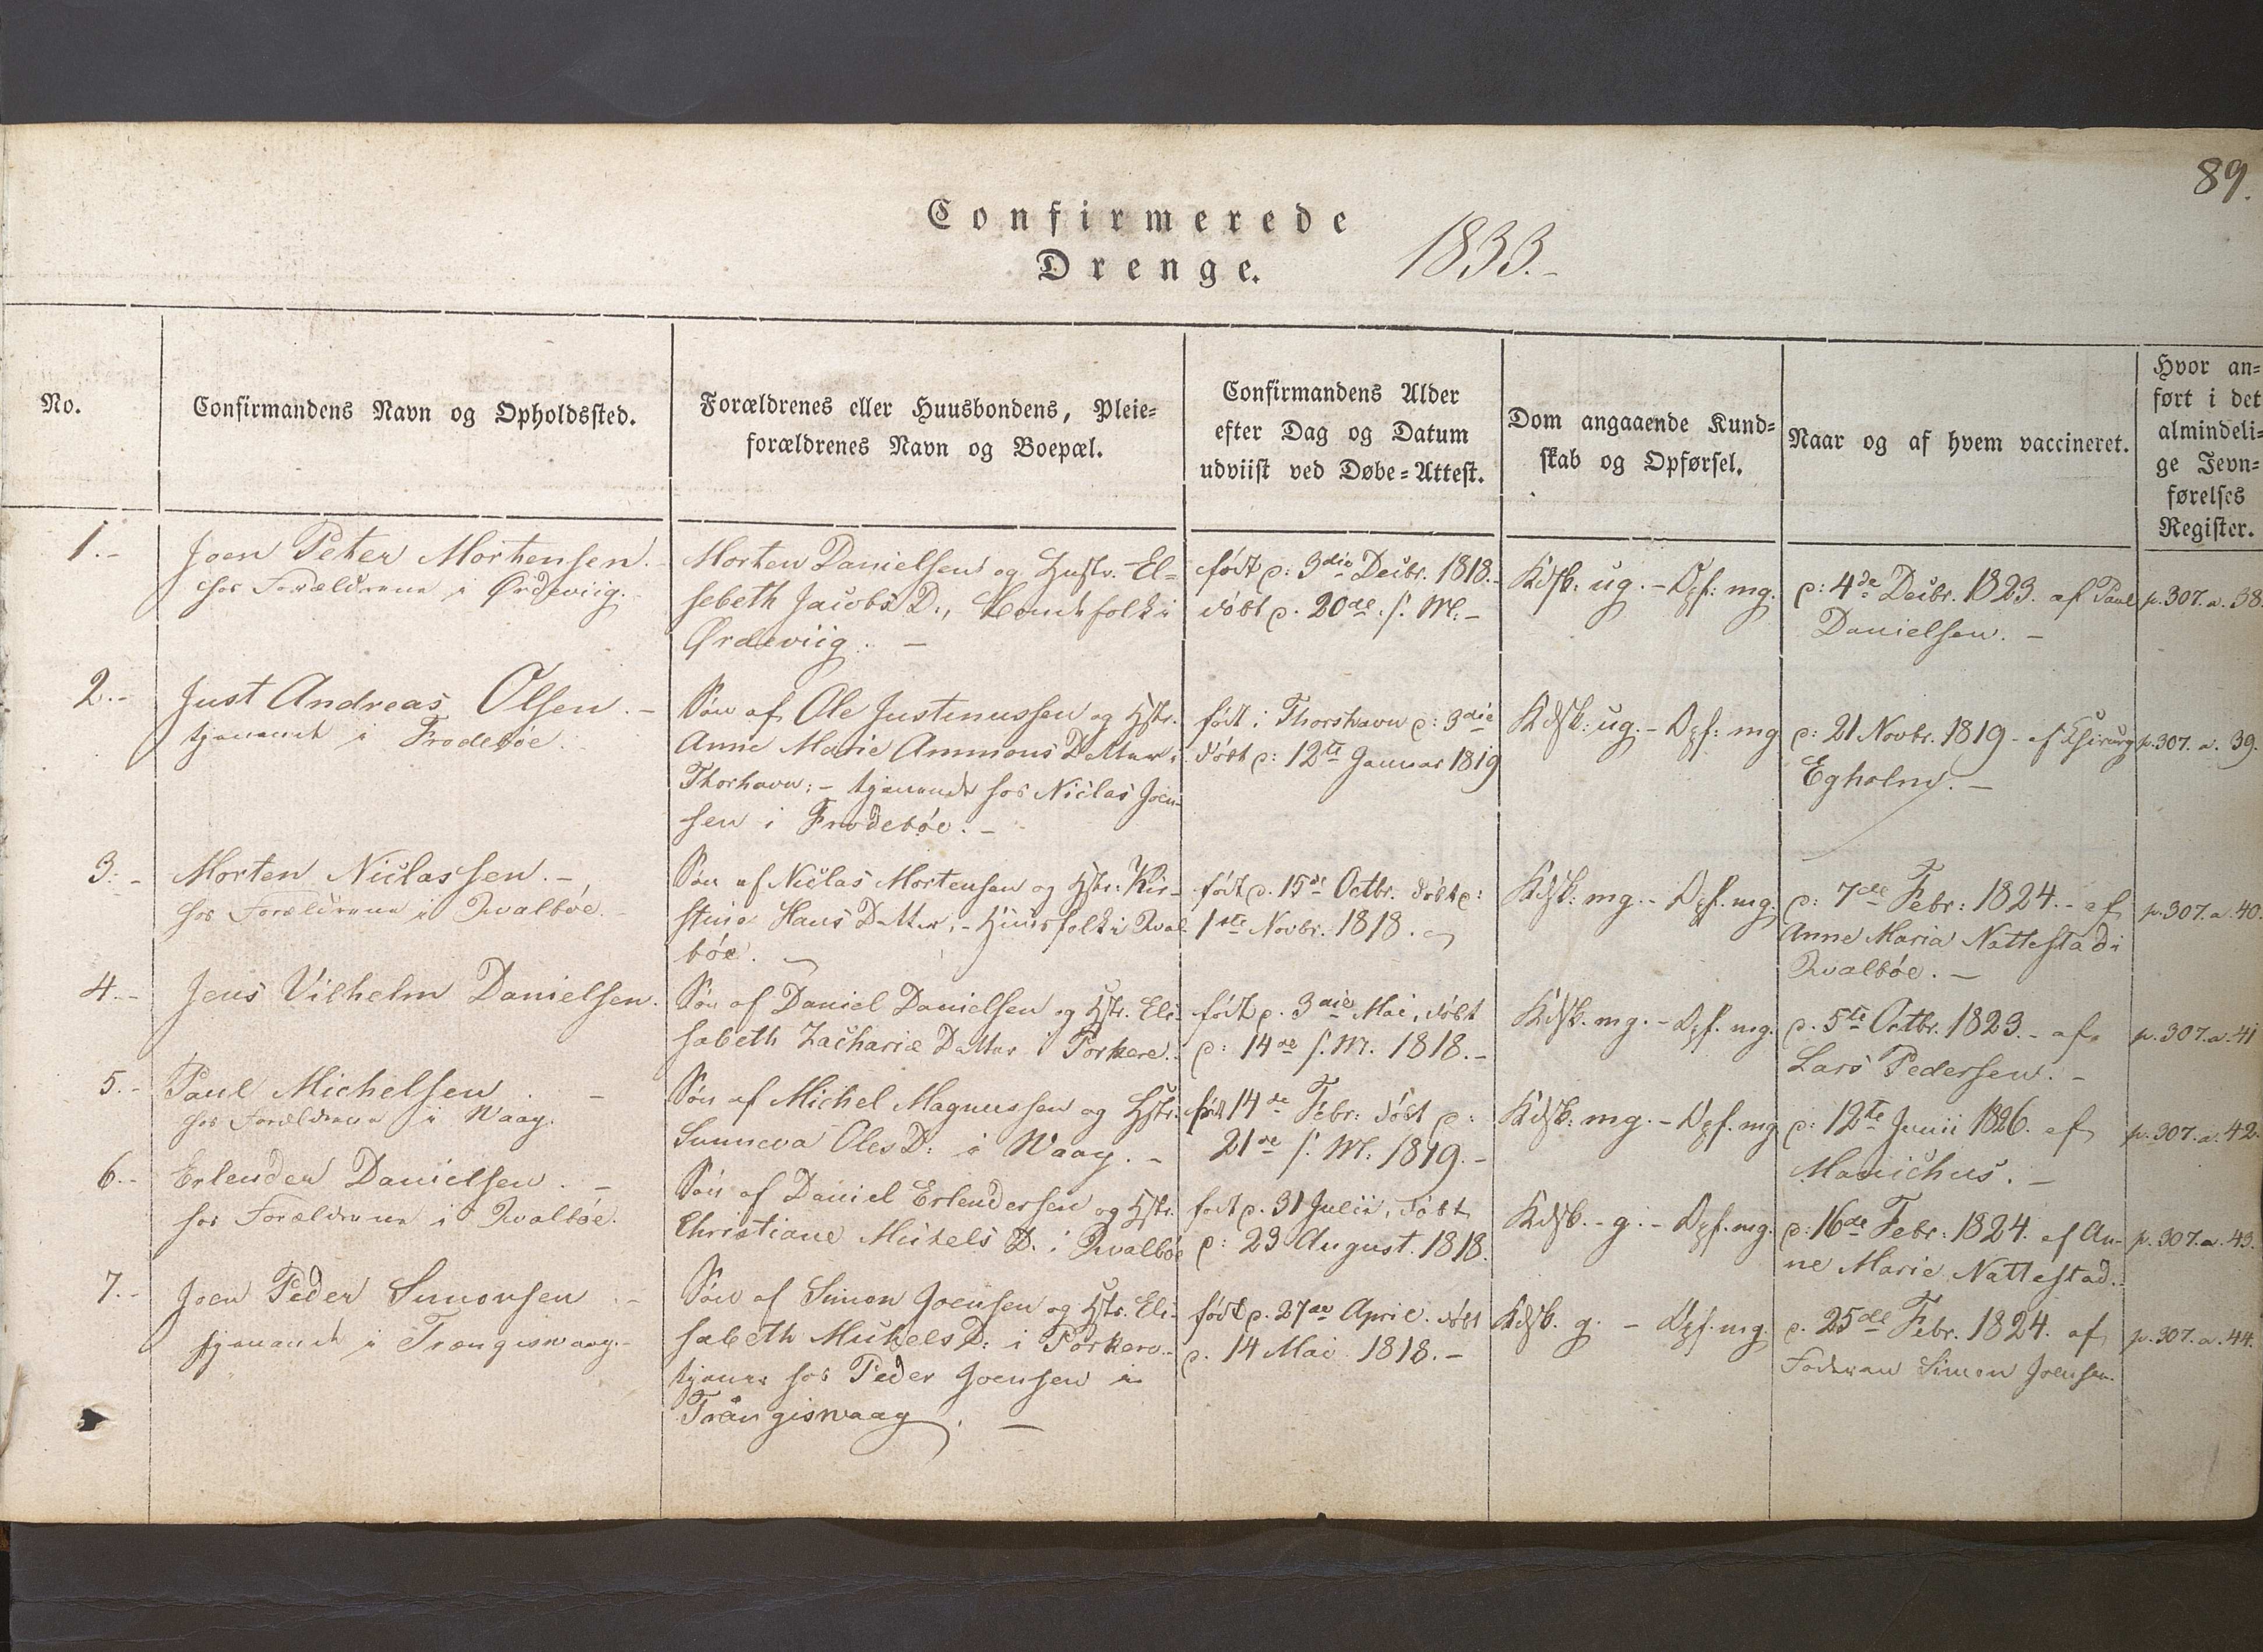 89.
Confirmerede
Drenge.
1833.-
No.
Confirmandens Navn og Opholdssted.
Forældrenes eller Huusbondens, Pleie=
forældrenes Navn og Boepæl.
Confirmandens Alder
efter Dag og Datum
udviist ved Døbe=Attest.
Dom angaaende Kund=
skab og Opførsel.
Naar og af hvem vaccineret.
Hvor an=
ført i det
almindeli=
ge Jevn=
førelses
Register.
1.-
Joen Peter Mortensen.-
hos Forældrene i Ørdeviig.
Morten Danielsen og Hustr. El=
sebeth Jacobs D., Bondefolk i
Ørdeviig. -
født d: 3die Decbr. 1818.-
døbt d. 20de s. M.-
Kdsk: ug.- Opf: mg.
d: 4de Decbr. 1823. af Paul
Danielsen. -
p. 307. a. 38
2.-
Just Andreas Olsen.-
tjenende i Frodebøe.
Søn af Ole Justinussen og Hstr.
Anne Marie Ammons Datter i
Thorhavn; - tjenende hos Niclas Joen-
sen i Frodebøe.-
født i Thorshavn d: 3die
døbt d: 12te Januar 1819
Kdsk: ug.- Opf: mg
d: 21 Novbr. 1819 - af Chirurg
Egholm. -
p. 307. a. 39.
3.-
Morten Niclassen.-
hos Forældrene i Qvalbøe.
Søn af Niclas Mortensen og Hstr. Kir-
stine Hans Datter, - Huusfolk i Qval
bøe.
født d. 15de Octbr. døbt d:
1ste Novbr. 1818.
Kdsk: mg.- Opf. mg.
d: 7de Febr: 1824.- af
Anne Maria Nattestad i
Qvalbøe. -
p. 307. a. 40.
4.-
Jens Vilhelm Danielsen.
Søn af Daniel Danielsen og Hstr. Eli-
sabeth Zachariæ Datter i Porkere.
født d. 3die Mai, døbt
d: 14de s. M. 1818.-
Kdsk. mg.- Opf. mg.
d. 5te Octbr. 1823.- af
Lars Pedersen. -
p. 307. a. 41
5.-
Paul Michelsen. -
hos Forældrene i Waag.
Søn af Michel Magnussen og Hstr.
Sunneva Oles D: i Waag. -
født 14de Febr: døbt d:
21de s. M: 1819.-
Kdsk: mg.- Opf. mg
d: 12te Junii 1826. af
Manichus. -
p. 307. a. 42.
6.-
Erlender Danielsen. -
hos Forældrene i Qvalbøe.
Søn af Daniel Erlendersen og Hstr.
Christiane Michels D. i Qvalbøe
født d. 31 Julii, døbt
d: 23 August. 1818.
Kdsk.- g.- Opf. mg.
d: 16de Febr: 1824. af An-
ne Marie Nattestad.
p. 307. a. 43.
7.-
Joen Peder Simonsen -
tjenende i Trongiswaag.-
Søn af Simon Joensen og Hstr. Eli-
sabeth Michels D: i Porkere.-
tjener hos Peder Joensen i
Trångiswaag. -
født d. 27de April. døbt
d. 14 Mai 1818.-
Kdsk. g. - Opf. mg.
d. 25de Febr. 1824. af
Faderen Simon Joensen.
p. 307. a. 44.